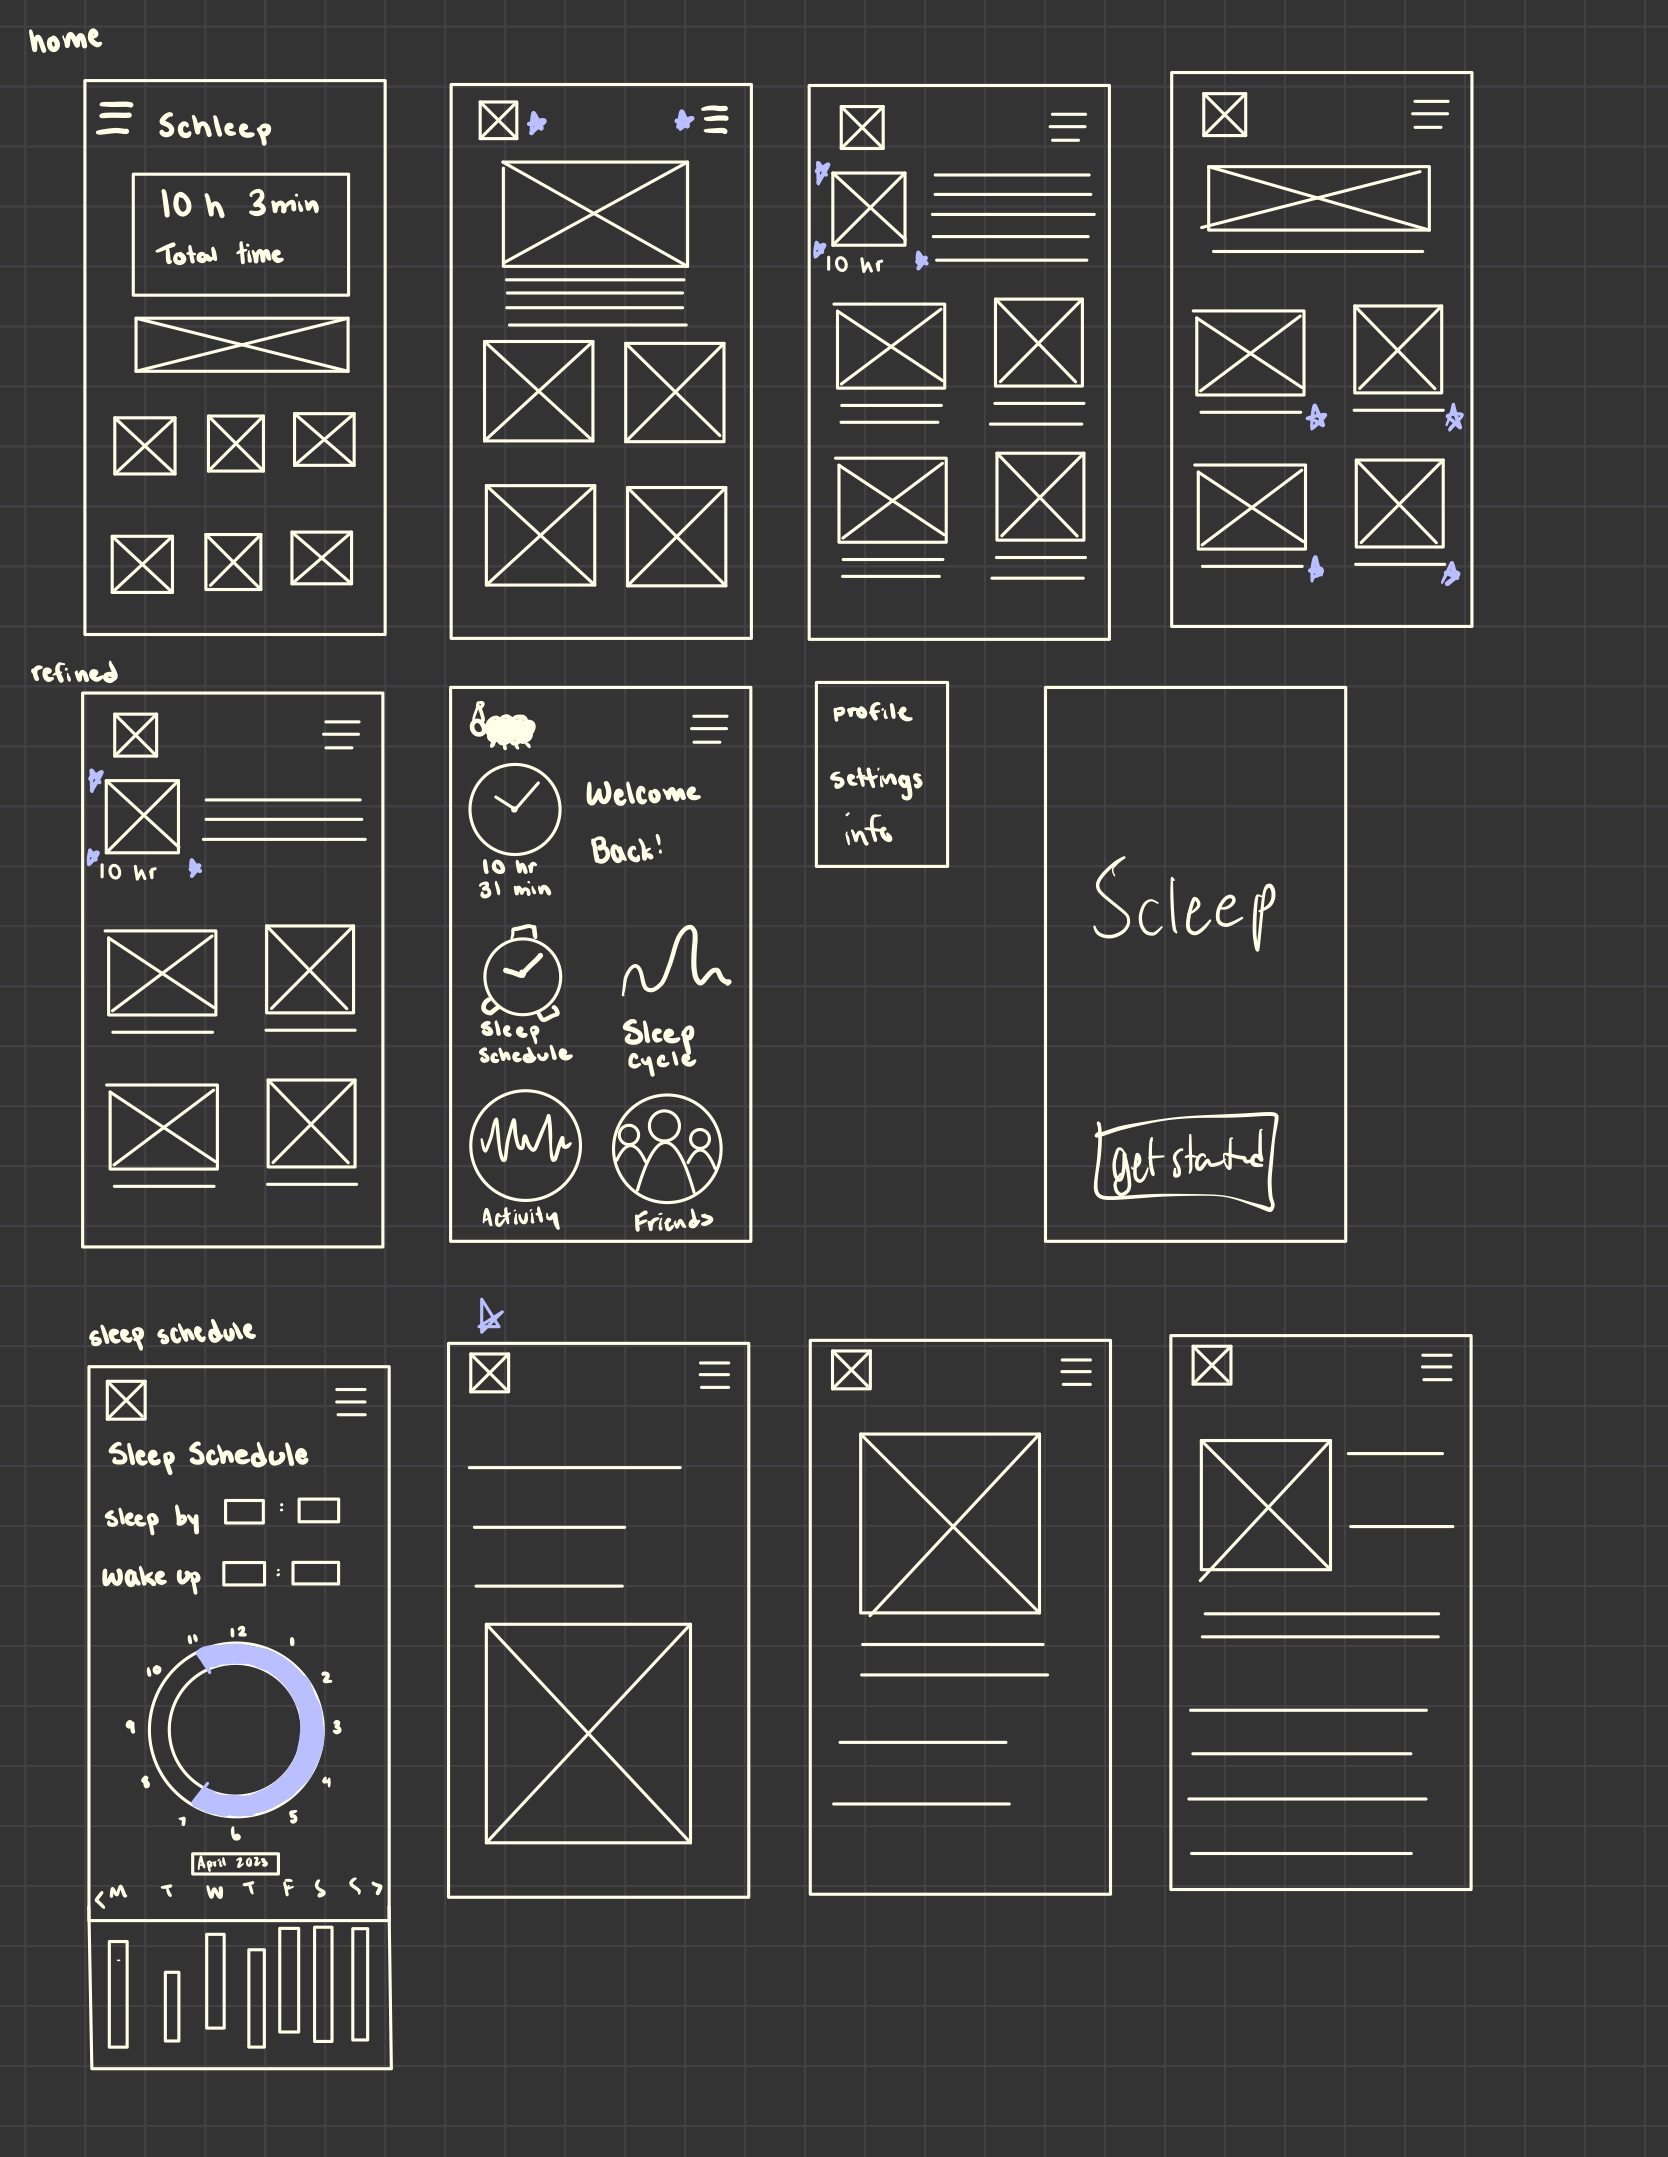 home
Schleep
10 h 3min
Total time
10 hr
refined
10 hr
Welcome
Back!
10 hr
31 min
Sleep
Schedule
Sleep
cycle
Activity
Friends
profile
settings
info
Scleep
get started
sleep schedule
Sleep Schedule
Sleep by :
Wake up :
11 12 1
10 2
9 3
8 4
7 6 5
April 2023
< M T W T F S S >